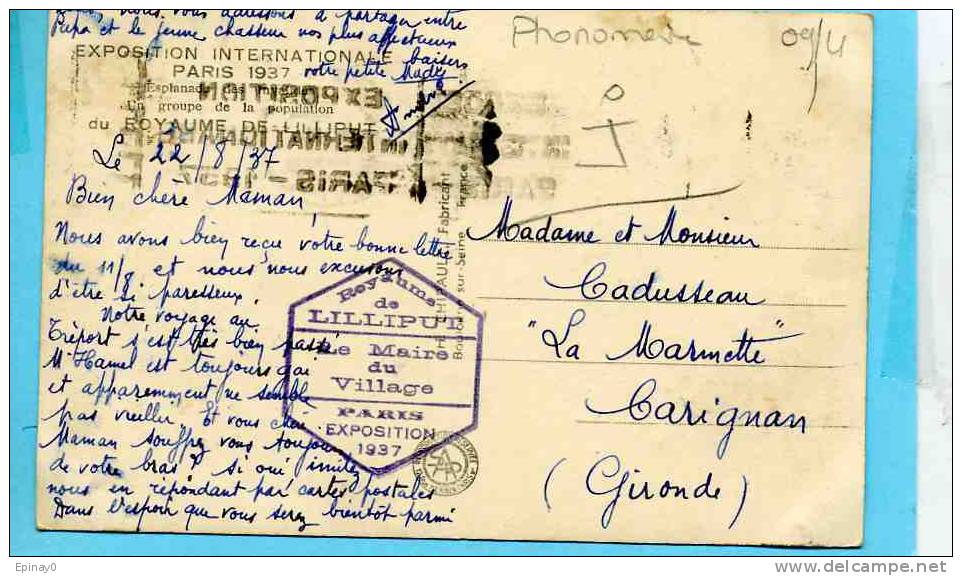 nous vous adressons à partager entre
Papa et le jeune chasseur nos plus affectueux
baisers
EXPOSITION INTERNATIONALE
PARIS 1937
votre petite Mady
André
Esplanade des
Un groupe de la population
du ROYAUME DE LILLIPUT
EXPOSITION
INTERNATIONALE
PARIS - 1937
Le 22/8/37
Bien chère Maman,
Nous avons bien reçu votre bonne lettre
du 11/8 et nous nous excusons
d'être si paresseux.
Notre voyage au
Tréport s'est très bien passé
Mr Hamel est toujours gai
et apparemment ne semble
pas vieillir. Et vous chère
Maman souffrez vous toujours
de votre bras? si oui imitez
nous en répondant par cartes postales
Dans l'espoir que vous serez bientôt parmi
Royaume
de
LILLIPUT
Le Maire
du
Village
PARIS
EXPOSITION
1937
Fabricant
sur-Seine France
09/4
Madame et Monsieur
Cadusseau
"La Marmette"
Carignan
(Gironde)
Epinay0
delcampe.net